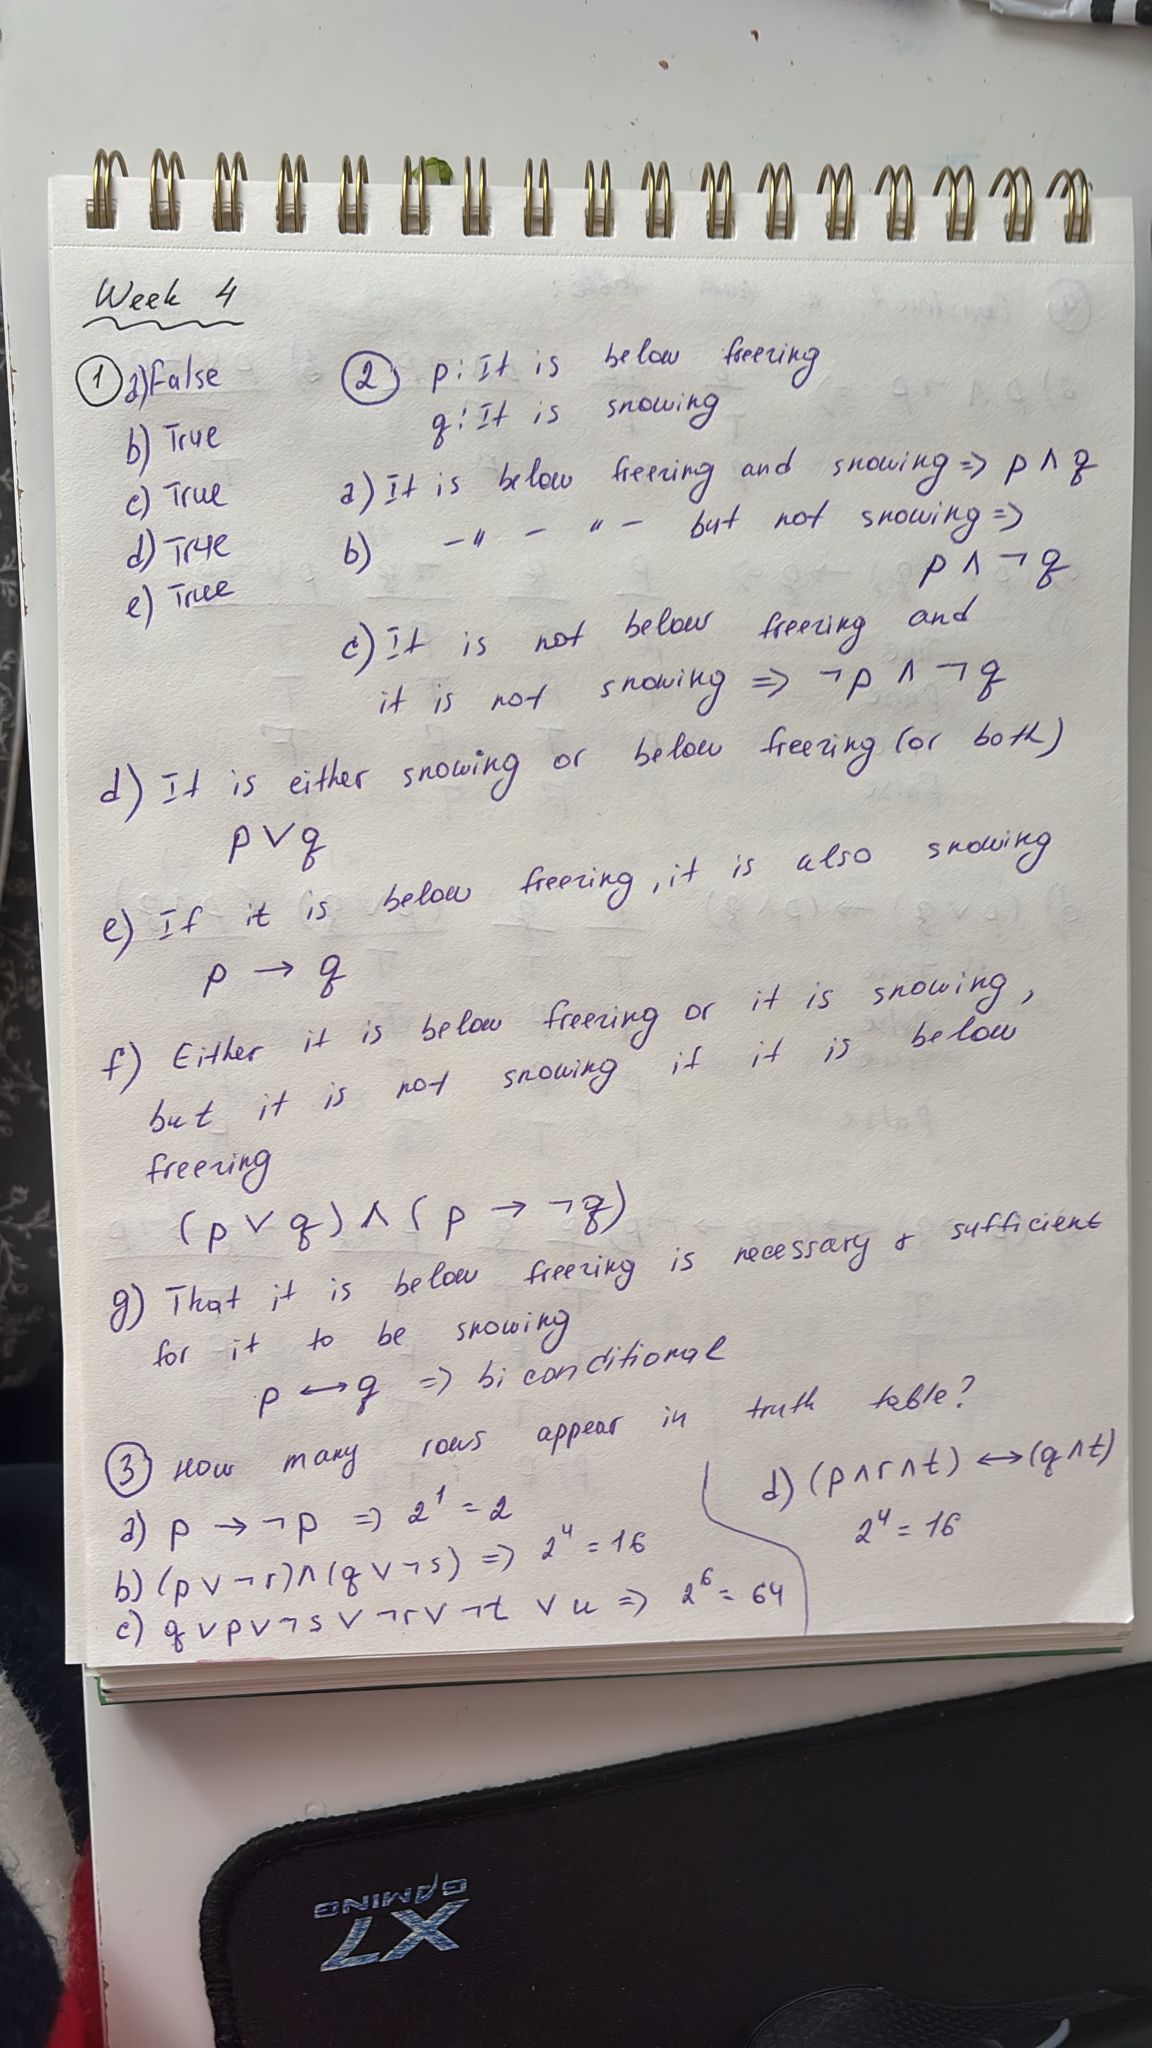 Week 4
① a) False
b) True
c) True
d) True
e) True
② p: It is below freezing
q: It is snowing
a) It is below freezing and snowing => p ∧ q
b) -〃 - 〃 - but not snowing =>
p ∧ ¬q
c) It is not below freezing and
it is not snowing => ¬p ∧ ¬q
d) It is either snowing or below freezing (or both)
p ∨ q
e) If it is below freezing, it is also snowing
p → q
f) Either it is below freezing or it is snowing,
but it is not snowing if it is below
freezing
(p ∨ q) ∧ (p → ¬q)
g) That it is below freezing is necessary & sufficient
for it to be snowing
p ↔ q => biconditional
③ How many rows appear in truth table?
a) p → ¬p => 2¹ = 2
b) (p ∨ ¬r) ∧ (q ∨ ¬s) => 2⁴ = 16
c) q ∨ p ∨ ¬s ∨ ¬r ∨ ¬t ∨ u => 2⁶ = 64
d) (p ∧ r ∧ t) ↔ (q ∧ t)
2⁴ = 16
X7
GAMING